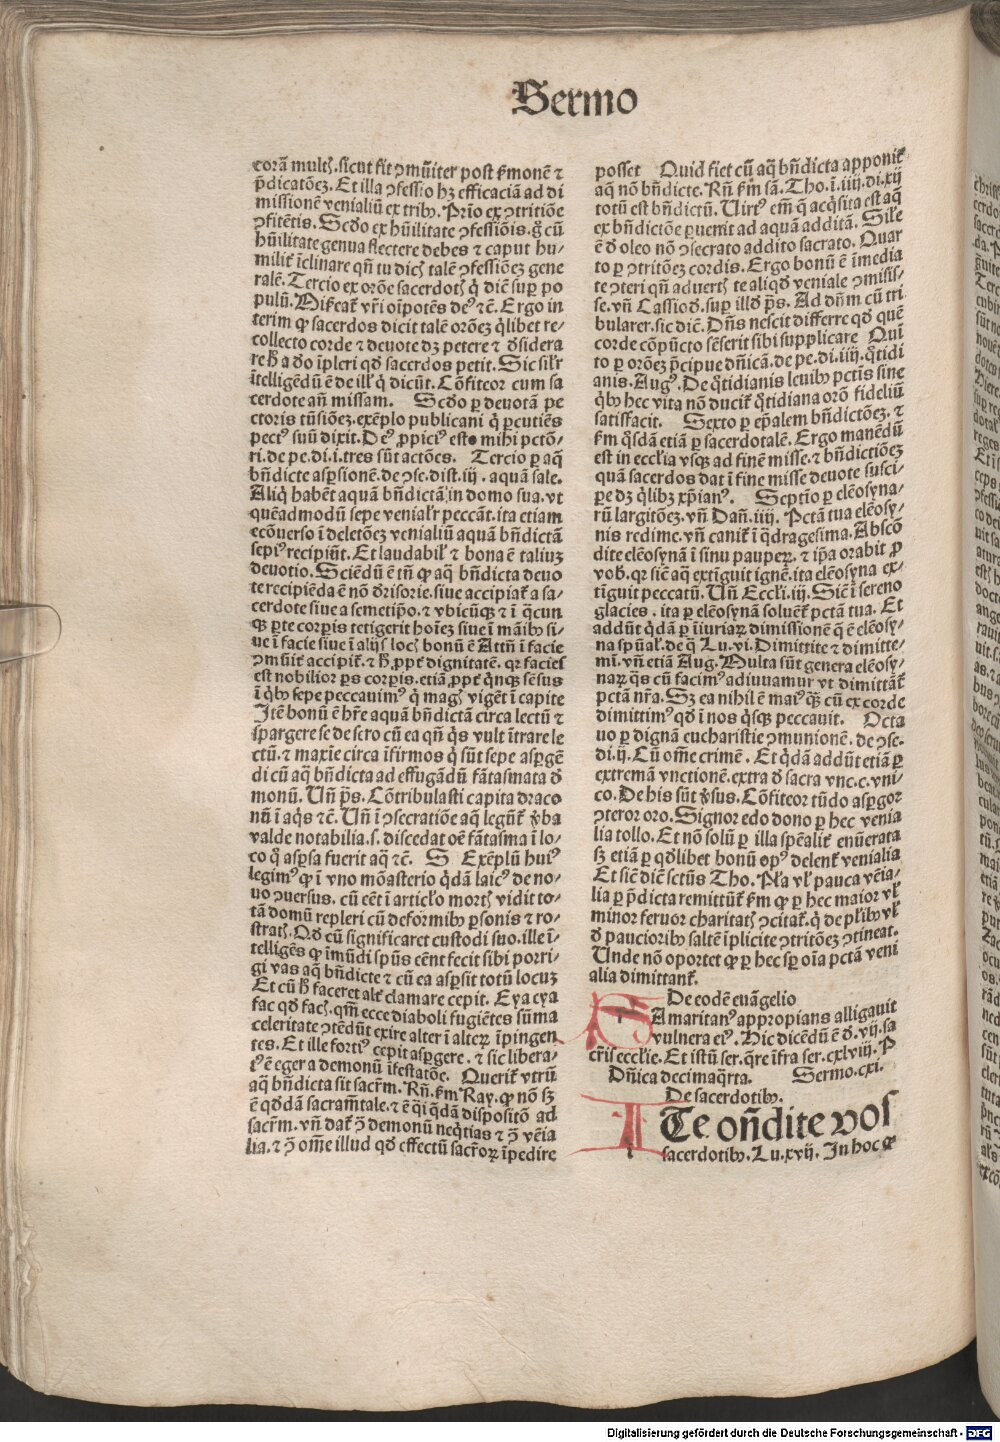 Sermo
corã multꝭ. sicut fit ꝯmũiter post ẜmonẽ ⁊
p̃dicatõeꝫ. Et illa ꝯfessio hꝫ efficaciã ad di
missionẽ venialiũ ex tribꝰ. Prĩo ex ꝯtritiõe
ꝯfitẽtis. Scđo ex hũilitate ꝯfessiõis. g̃ cũ
hũilitate genua flectere debes ⁊ caput hu-
milit̃ ĩclinare qñ tu dicꝭ talẽ ꝯfessiõeꝫ gene
ralẽ. Tercio ex orõe sacerdotꝭ q̃ diẽ suꝑ po
pulũ. Miẜeat̃ vr̃i oĩpotẽs deꝰ ⁊c̃. Ergo in
terim ꝙ sacerdos dicit talẽ orõeꝫ q̃libet re-
collecto corde ⁊ deuote dꝫ petere ⁊ đsidera
re ħ a đo ĩpleri qđ sacerdos petit. Sic sil̃r
ĩtelligẽdũ ẽ de ill̃ q̃ dicũt. Cõfiteor cum sa
cerdote añ missam. Scđo ꝑ deuotã pe
ctoris tũsiõeꝫ. exẽplo publicani q̃ ꝑcutiẽs
pectꝰ suũ dixit. Deꝰ ꝓpiciꝰ esto mihi pctõ-
ri. de pe. di. i. tres sũt actões. Tercio ꝑ aq̃
bñdicte asꝑsionẽ. de ꝯse. dist. iij. aquã sale.
Aliq̃ habẽt aquã bñdictã in domo sua. vt
quẽadmodũ sepe venial̃r peccãt. ita etiam
ecõuerso ĩ deletõeꝫ venialiũ aquã bñdictã
sepiꝰ recipiũt. Et laudabil̃ ⁊ bona ẽ taliuꝫ
deuotio. Sciẽdũ ẽ tñ ꝙ aq̃ bñdicta deuo
te recipiẽda ẽ nõ đrisorie. siue accipiat̃ a sa-
cerdote siue a semetip̃o. ⁊ vbicũqꝫ ⁊ ĩ q̃cun
qꝫ ꝑte corꝑis tetigerit hoĩeꝫ siue ĩ mãibꝰ si-
ue ĩ facie siue ĩ alijs locꝭ bonũ ẽ Attñ ĩ facie
ꝯmũit̃ accipit̃. ⁊ ħ ꝓpt̃ dignitatẽ. qꝛ facies
est nobilior ꝑs corꝑis. etiã ꝓpt̃ q̃nqꝫ sẽsus
ĩ q̃bꝰ sepe peccauimꝰ q̃ magꝭ vigẽt ĩ capite
Itẽ bonũ ẽ hr̃e aquã bñdictã circa lectũ ⁊
spargere se de sero cũ ea qñ q̃s vult ĩtrare le
ctũ. ⁊ maxĩe circa ĩfirmos q̃ sũt sepe asꝑgẽ
di cũ aq̃ bñdicta ad effugãdũ fãtasmata đ
monũ. Uñ p̃s. Cõtribulasti capita draco
nũ ĩ aq̃s ⁊c̃. Uñ ĩ ꝯsecratiõe aq̃ legũt̃ v̾ba
valde notabilia. s. discedat oẽ fãtasma ĩ lo-
co q̃ asꝑsa fuerit aq̃ ⁊c̃. S Exẽplũ huiꝰ
legimꝰ ꝙ ĩ vno mõasterio q̃dã laicꝰ de no-
uo ꝯuersus. cũ eẽt ĩ articl̃o mortꝭ vidit to-
tã domũ repleri cũ deformibꝰ ꝑsonis ⁊ ro-
stratꝭ. Qđ cũ significaret custodi suo. ille ĩ-
telligẽs ꝙ ĩmũdi spũs eẽnt fecit sibi porri-
gi vas aq̃ bñdicte ⁊ cũ ea asꝑsit totũ locuꝫ
Et cũ ħ faceret alt̃ clamare cepit. Eya eya
fac qđ facꝭ. qm̃ ecce diaboli fugiẽtes sũma
celeritate ꝯtẽdũt exire alter ĩ alteꝝ ĩpingen
tes. Et ille fortiꝰ cepit asꝑgere. ⁊ sic libera-
tꝰ ẽ eger a demonũ ĩfestatõe. Querit̃ vtrũ
aq̃ bñdicta sit sacr̃m. Rñ. ẜm Ray. ꝙ nõ sꝫ
ẽ qđdã sacram̃tale. ⁊ ẽ q̃i q̃dã dispositõ ad
sacr̃m. vñ dat̃ ꝯ̃ demonũ neq̃tias ⁊ ꝯ̃ vẽia
lia. ⁊ ꝯ̃ om̃e illud qđ effectũ sacr̃oꝝ ĩpedire
posset Quid fiet cũ aq̃ bñdicta apponit̃
aq̃ nõ bñdicte. Rñ ẜm sã. Tho. ĩ. iiij. di. xij
totũ est bñdictũ. Uirtꝰ em̃ q̃ acq̃sita est aq̃
ex bñdictõe ꝑuenit ad aquã additã. Sil̃e
ẽ đ oleo nõ ꝯsecrato addito sacrato. Quar
to ꝑ ꝯtritõeꝫ cordis. Ergo bonũ ẽ ĩmedia
te ꝯteri qñ aduertꝭ te aliqđ veniale ꝯmisis-
se. vñ Cassiođ. suꝑ illđ p̃s. Ad dñm cũ tri
bularer. sic diẽ. Dñs nescit differre qđ quẽ
corde cõpũcto sẽserit sibi supplicare Quĩ
to ꝑ orõeꝫ p̃cipue dñicã. de pe. di. iiij. q̃tidi
anis. Augꝰ. De q̃tidianis leuibꝰ pctĩs sine
q̃bꝰ hec vita nõ ducit̃ q̃tidiana orõ fideliũ
satisfacit. Sexto ꝑ ep̃alem bñdictõeꝫ. ⁊
ẜm q̃sdã etiã ꝑ sacerdotalẽ. Ergo manẽdũ
est in eccl̃ia vsqꝫ ad finẽ misse. ⁊ bñdictiõeꝫ
quã sacerdos dat ĩ fine misse deuote susci-
ꝑe dꝫ q̃libꝫ xp̃ianꝰ. Septĩo ꝑ elẽosyna-
rũ largitõeꝫ. vñ Dañ. iiij. Pctã tua elẽosy-
nis redime. vñ canit̃ ĩ q̃dragesima. Abscõ
dite elẽosynã ĩ sinu pauperꝝ. ⁊ ip̃a orabit ꝓ
vobꝭ. qꝛ siẽ aq̃ extĩguit ignẽ. ita elẽosyna ex-
tĩguit peccatũ. Uñ Eccl̃i. iij. Siẽ ĩ sereno
glacies. ita ꝑ elẽosynã soluẽt̃ pctã tua. Et
addũt q̃dã ꝑ ĩiuriaꝝ dimissionẽ q̃ ẽ elẽosy-
na spũal̃. de q̃ Lu. vi. Dimittite ⁊ dimitte-
mĩ. vñ etiã Aug. Multa sũt genera elẽosy-
naꝝ q̃s cũ facimꝰ adiuuamur vt dimittãt̃
pctã nr̃a. Sꝫ ea nihil ẽ maiꝰ q̃ꝫ cũ ex corde
dimittimꝰ qđ ĩ nos q̃sqꝫ peccauit. Octa
uo ꝑ dignã eucharistie ꝯmunionẽ. de ꝯse-
di. ij. Cũ om̃e crimẽ. Et q̃dã addũt etiã ꝑ
extremã vnctionẽ. extra đ sacra vnc. c. vni-
co. De his sũt v̾sus. Cõfiteor tũdo asꝑgor
ꝯteror oro. Signor edo dono ꝑ hec venia
lia tollo. Et nõ solũ ꝑ illa sp̃ealit̃ enũerata
sꝫ etiã ꝑ qđlibet bonũ opꝰ delent̃ venialia
Et siẽ diẽ sctũs Tho. Pl̃a vl̃ pauca vẽia-
lia ꝑ p̃dicta remittũt̃ ẜm ꝙ ꝑ hec maior vl̃
minor feruor charitatꝭ ꝯcitat̃. q̃ de pl̃ibꝰ vl̃
đ paucioribꝰ saltẽ ĩplicite ꝯtritõeꝫ ꝯtineat.
Unde nõ oportet ꝙ ꝑ hec sꝑ oĩa pctã veni
alia dimittant̃.
De eodẽ euãgelio
Samaritanꝰ appropians alligauit
vulnera eiꝰ. Hic dicẽdũ ẽ đ. vij. sa
cr̃is eccl̃ie. Et istũ ser. q̃re ĩfra ser. cxlviij. P
Dñica decimaq̃rta. Sermo. cxi.
De sacerdotibꝰ.
ITe oñdite vos
sacerdotibꝰ. Lu. xvij. In hoc e
Digitalisierung gefördert durch die Deutsche Forschungsgemeinschaft - DFG